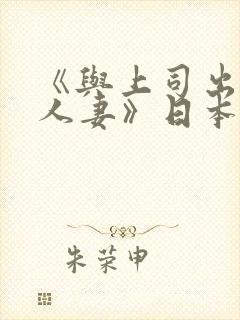 《與上司出
人妻》日本
朱荣申